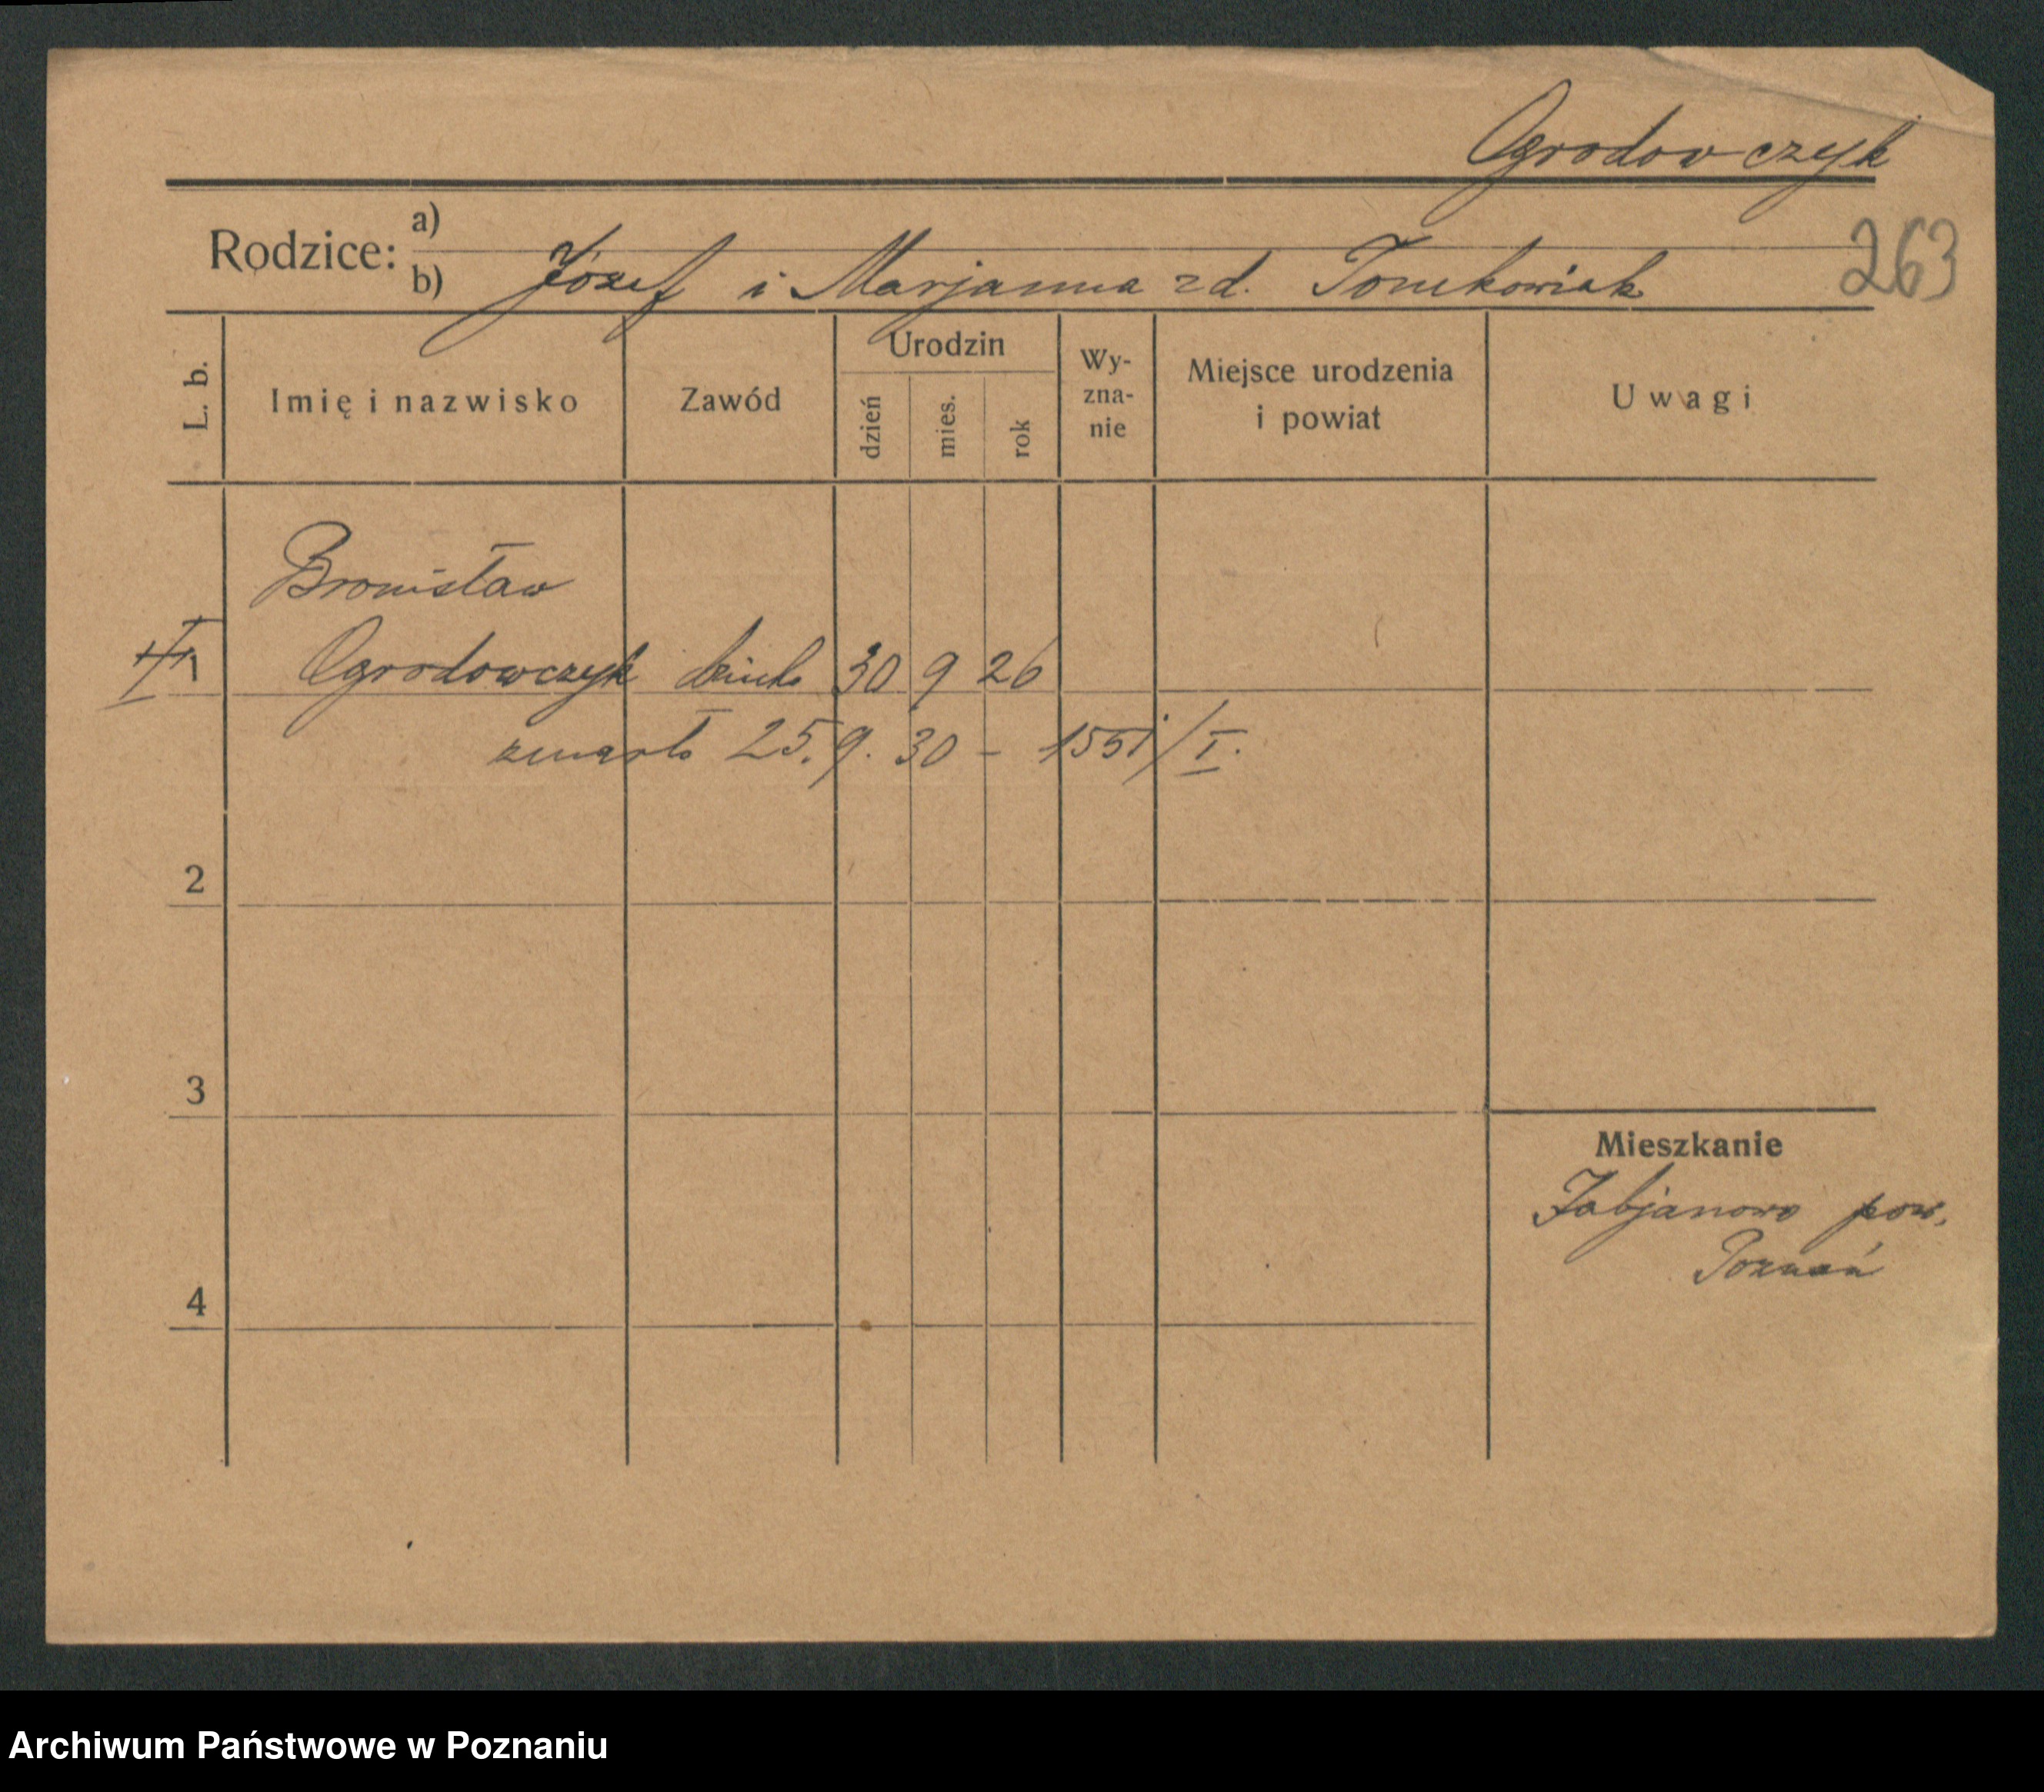 Ogrodowczyk
263
Rodzice: a)
b) Józef i Marjanna zd. Tomkowiak
L. b.
Imię i nazwisko
Zawód
Urodzin
dzień
mies.
rok
Wy-
zna-
nie
Miejsce urodzenia
i powiat
Uwagi
Bronisław
1 Ogrodowczyk dziecko 30 9 26
zmarło 25.9.30 – 1551/I.
2
3
4
Mieszkanie
Fabjanowo pow.
Poznań
Archiwum Państwowe w Poznaniu